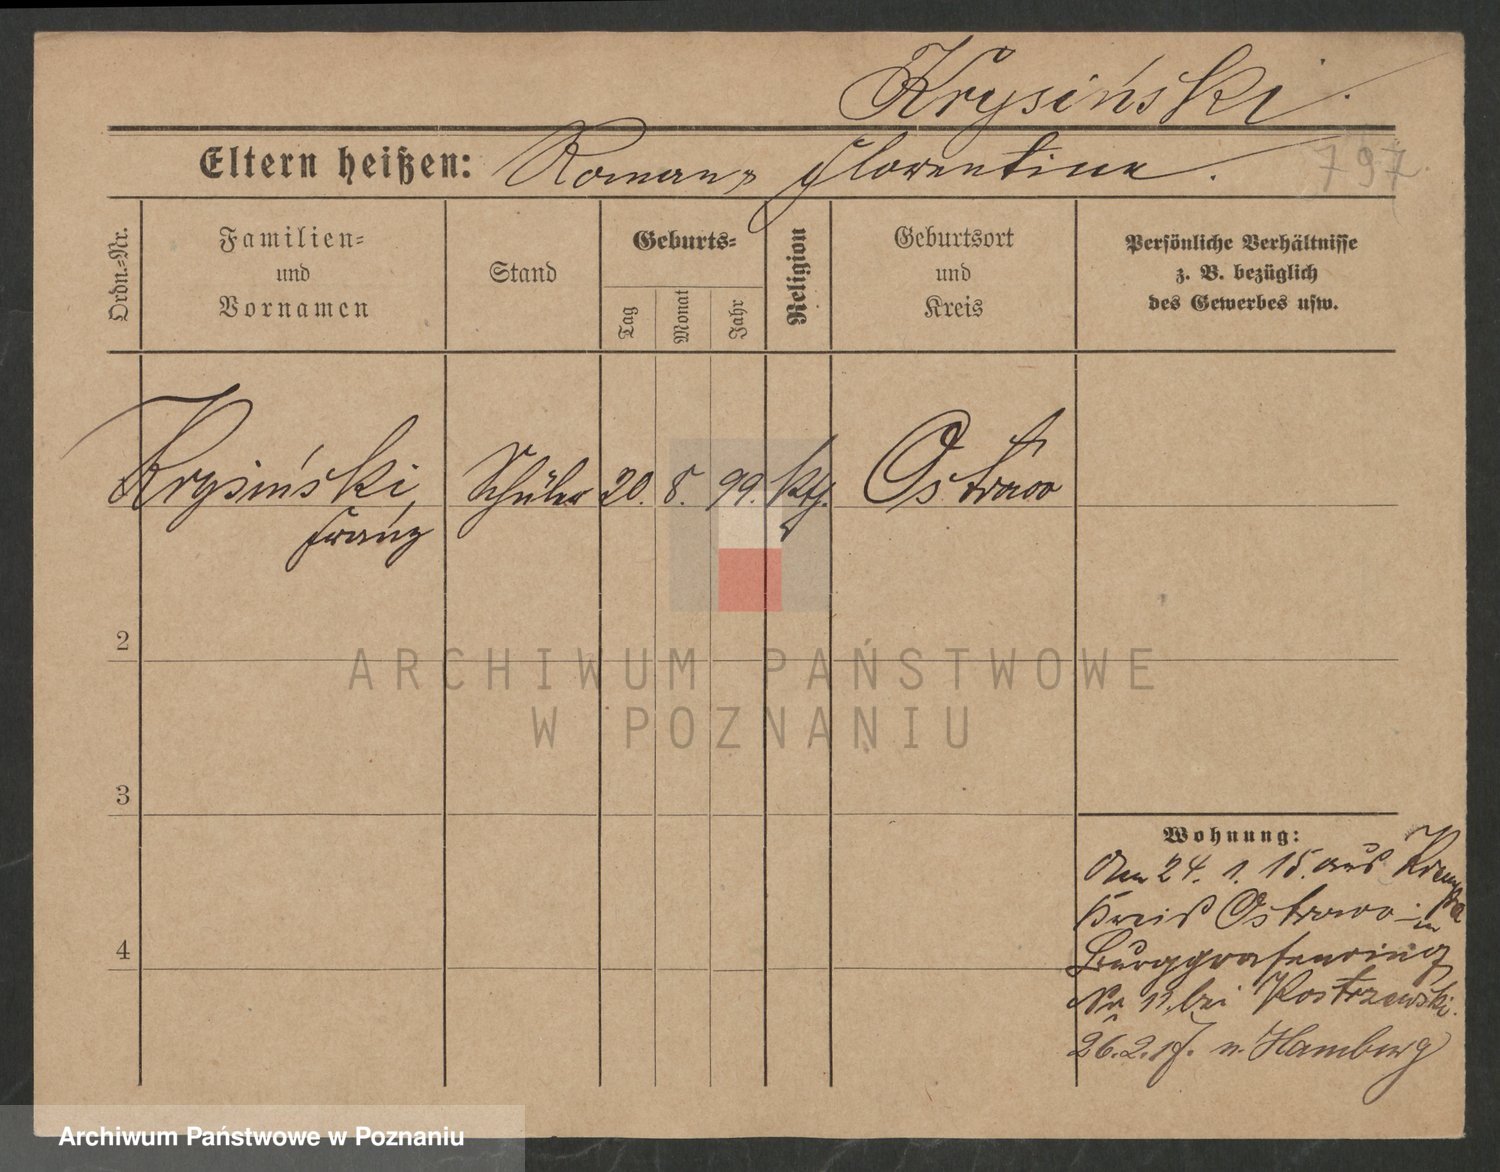 Krysiński.
Eltern heißen: Roman, Florentine.
797.
Ordn.-Nr.
Familien-
und
Vornamen
Stand
Geburts-
Tag
Monat
Jahr
Religion
Geburtsort
und
Kreis
Persönliche Verhältnisse
z. B. bezüglich
des Gewerbes usw.
Krysiński, Schüler 20. 8. 99. kth. Ostrowo
Franz
2
ARCHIWUM PAŃSTWOWE
W POZNANIU
3
4
Wohnung:
Am 24. 1. 15. aus
Kreis Ostrowo in
Burggrafenring
Nr 11. bei Kostrzewski.
26.2.17. n. Hamburg
Archiwum Państwowe w Poznaniu